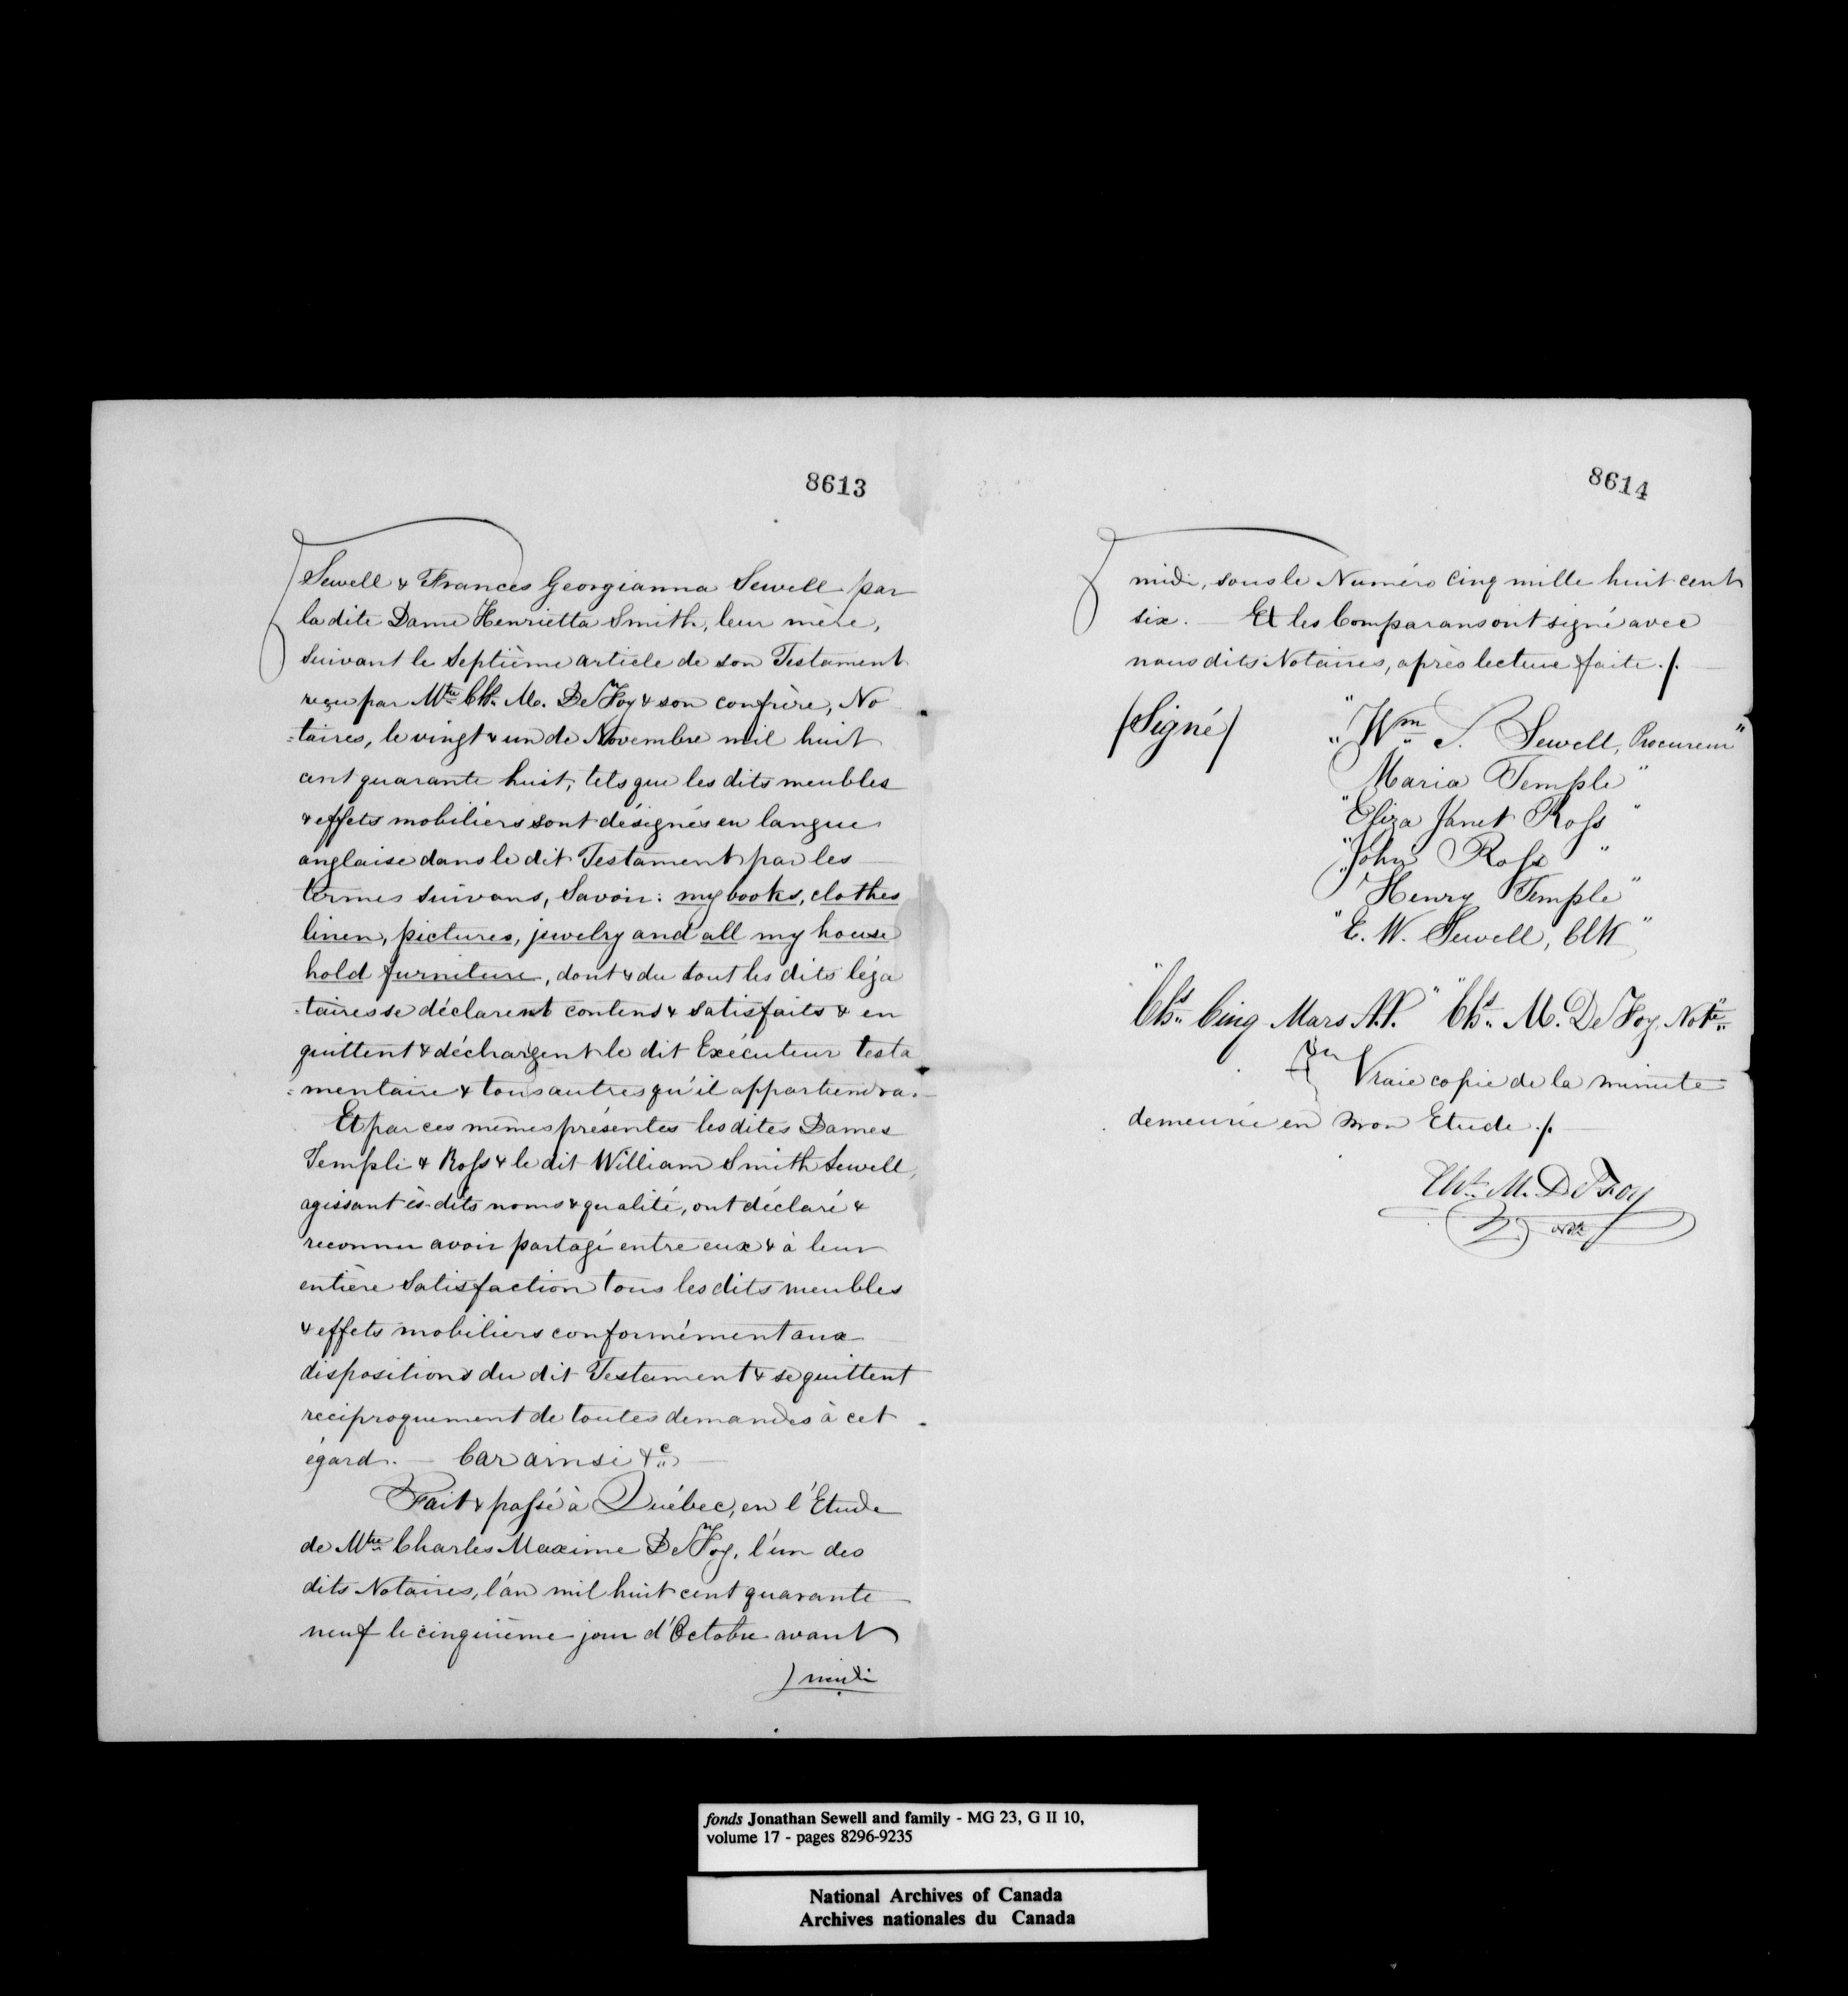 8613
Sewell & Frances Georgianna Sewell par
la dite Dame Henrietta Smith, leur mère,
suivant le Septième article de son Testament
reçu par Mtre Chs. M. DeFoy & son confrère, No
=taires, le vingt & un de Novembre mil huit
cent quarante huit, tels que les dits meubles
& effets mobiliers sont désignés en langue
anglaise dans le dit Testament par les
termes suivans, Savoir: my books, clothes
linen, pictures, jewelry and all my house
hold furniture, dont & du tout les dits léga
=taires se déclarent contens & satisfaits & en
quittent & déchargent le dit Exécuteur testa
=mentaire & tous autres qu'il appartiendra.
Et par ces mêmes présentes les dites Dames
Temple & Ross & le dit William Smith Sewell,
agissant ès-dits noms & qualité, ont déclaré &
reconnu avoir partagé entre eux & à leur
entière Satisfaction tous les dits meubles
& effets mobiliers conformément aux
dispositions du dit Testament & se quittent
réciproquement de toutes demandes à cet
égard. — Car ainsi &c
Fait & passé à Québec, en l'Etude
de Mtre Charles Maxime DeFoy, l'un des
dits Notaires, l'an mil huit cent quarante
neuf le cinquième jour d'Octobre avant
/ midi
8614
midi, sous le Numéro Cinq mille huit cent
six. — Et les Comparans ont signé avec
nous dits Notaires, après lecture faite ./.
/Signé/ "Wm S. Sewell, Procureur"
"Maria Temple"
"Eliza Janet Ross"
"John Ross"
"Henry Temple"
"E. W. Sewell, Clk"
"Chs. Cinq Mars N.P." "Chs. M. DeFoy, Notre"
Vraie copie de la minute
demeurée en mon Etude ./.
Chs. M. DeFoy
fonds Jonathan Sewell and family - MG 23, G II 10,
volume 17 - pages 8296-9235
National Archives of Canada
Archives nationales du Canada